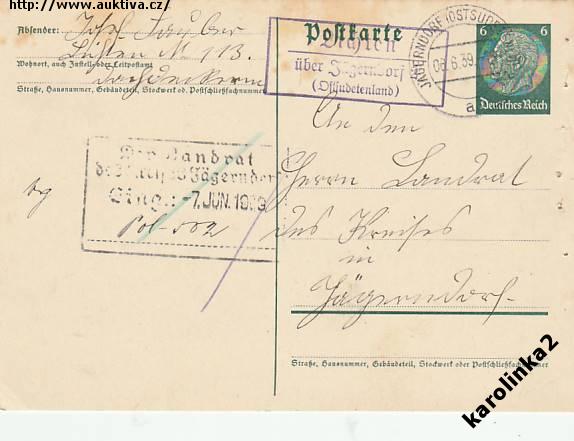 http://www.auktiva.cz/
Absender: Josef Tauber
Lichten № 113.
Wohnort, auch Zustell- oder Leitpostamt
Straße, Hausnummer, Gebäudeteil, Stockwerk od. Postschließfachnummer
Postkarte
Lichten
über Jägerndorf
(Ostsudetenland)
JÄGERNDORF (OSTSUDE
06.6.39
a
6 6
Deutsches Reich
Der Landrat
des Kreises Jägerndorf
Eing.: -7. JUN. 1939
Pol-502
An den
Herrn Landrat
des Kreises
in
Jägerndorf.
Straße, Hausnummer, Gebäudeteil, Stockwerk oder Postschließfachnummer
karolinka2